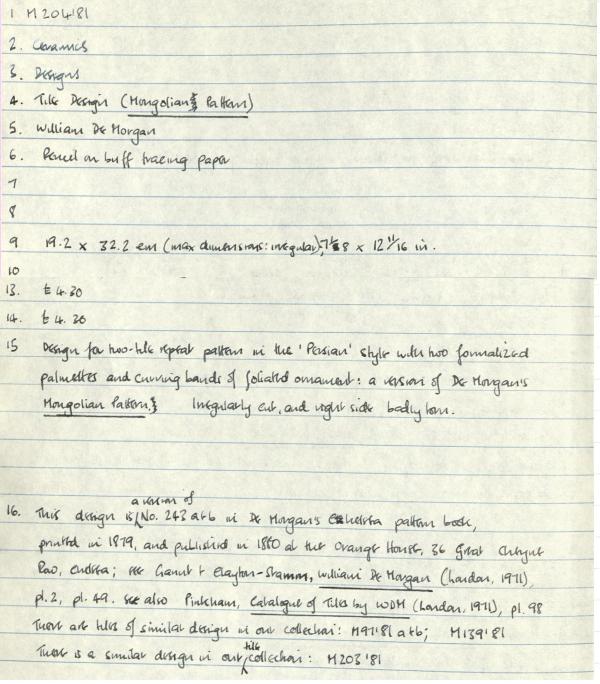 1 M204'81
2. Ceramics
3. Designs
4. Tile Design (Mongolian Pattern)
5. William De Morgan
6. Pencil on buff tracing paper
7
8
9 19.2 x 32.2 cm (max dimensions: irregular); 7 x 12 11/16 in.
10
13. £4.30
14. £4.20
15 Design for two-tile repeat pattern in the 'Persian' style with two formalized
palmettes and curving bands of foliated ornament: a version of De Morgan's
Mongolian Pattern. Irregularly cut, and right side badly torn.
a version of
16. This design is No. 243 a+b in De Morgan's Chelsea pattern book,
printed in 1879, and published in 1880 at the Orange House, 36 Great Cheyne
Row, Chelsea; see Gaunt + Clayton-Stamm, William De Morgan (London, 1971),
pl.2, pl.49. see also Pinkham, Catalogue of Tiles by WDM (London, 1971), pl. 98
There are tiles of similar design in our collection: M97'81 a+b; M139'81
tile
There is a similar design in our collection: M203'81